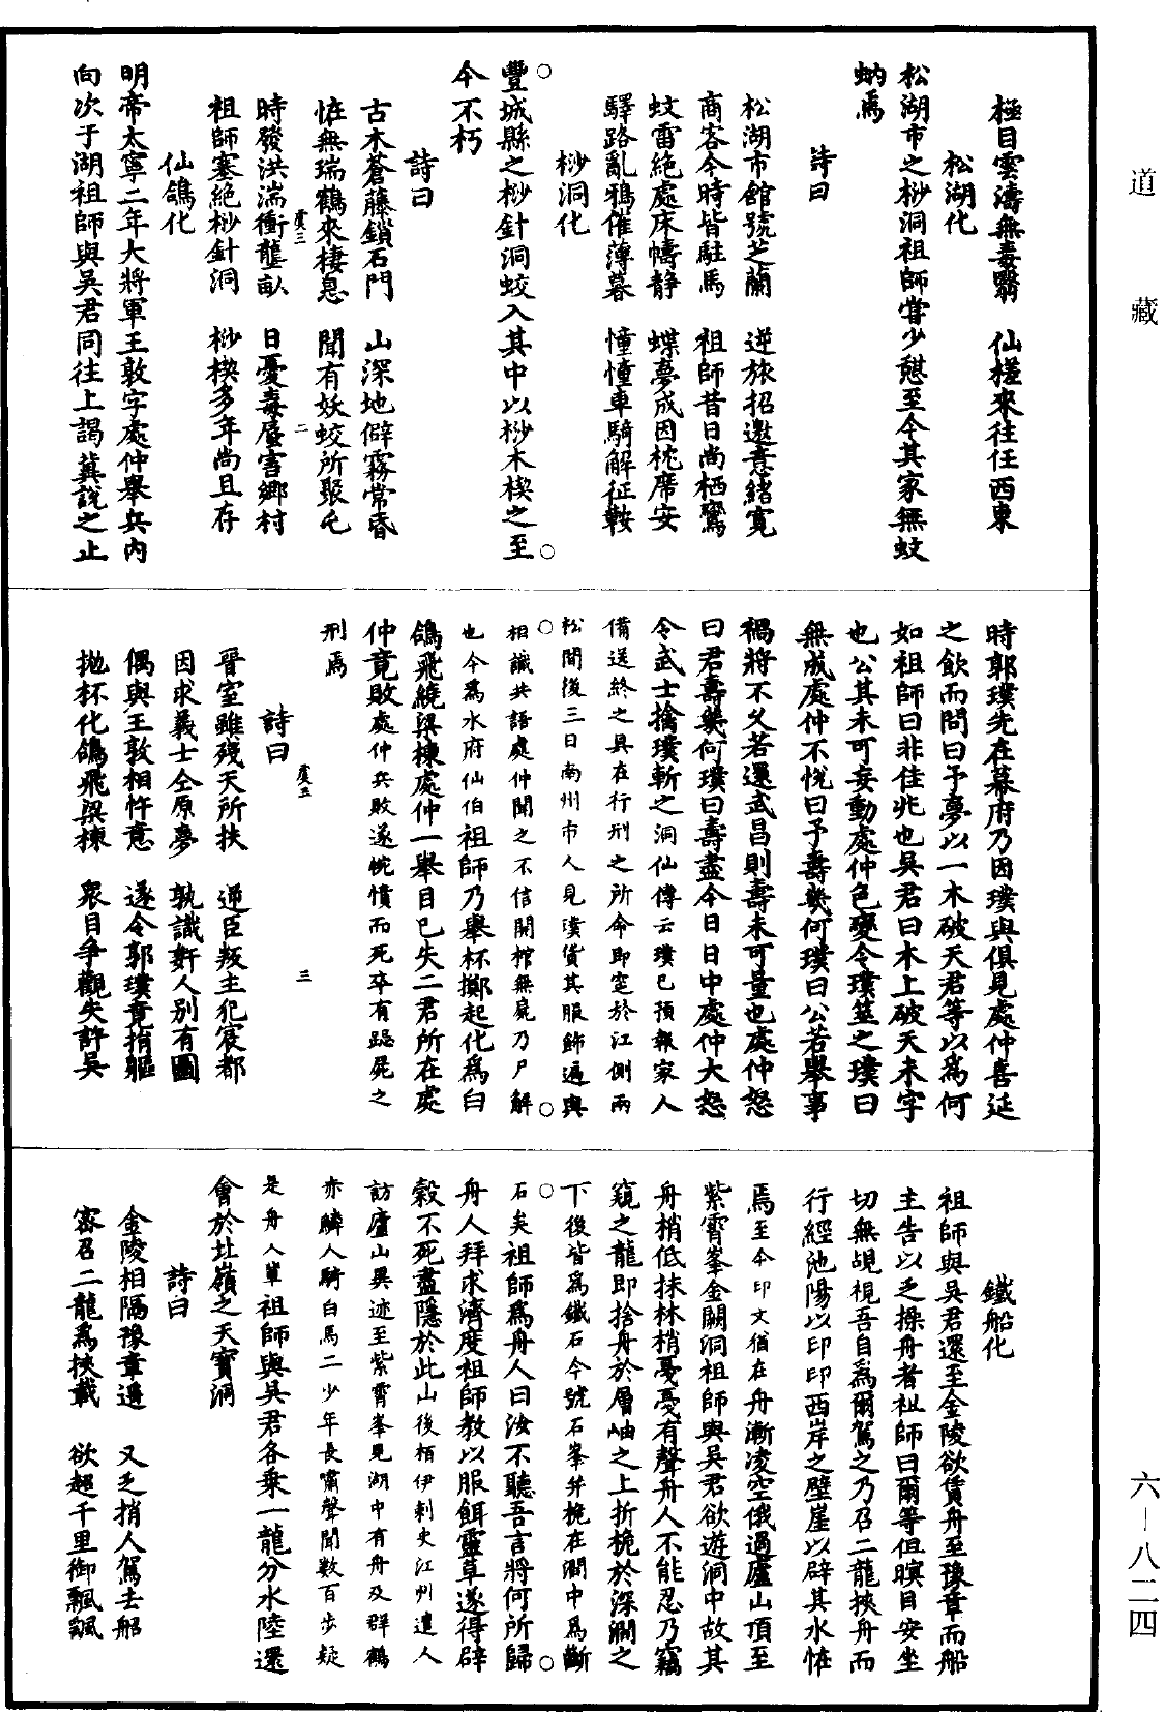 道藏
極目雲濤無毒翳　仙槎來往任西東
松湖化
松湖市之桫洞祖師嘗少憇至今其家無蚊
蚋焉
詩曰
松湖市館號芝蘭　逆旅招邀意緒寬
商客今時皆駐馬　祖師昔日尚栖鸞
蚊雷絕處床幬静　蝶夢成因枕席安
驛路亂鴉催薄暮　憧憧車騎解征鞍
桫洞化
豐城縣之桫針洞蛟入其中以桫木楔之至
今不朽
詩曰
古木蒼藤鎖石門　山深地僻霧常昏
恠無瑞鶴來棲息　聞有妖蛟所聚屯
時發洪湍衝壟畝　日憂毒蜃害鄉村
虞三　二
祖師塞絕桫針洞　桫楔多年尚且存
仙鴿化
明帝太寧二年大將軍王敦字處仲舉兵內
向次于湖祖師與吳君同往上謁冀説之止
時郭璞先在幕府乃因璞與俱見處仲喜延
之飲而問曰予夢以一木破天君等以爲何
如祖師曰非佳兆也吳君曰木上破天未字
也公其未可妄動處仲色變令璞筮之璞曰
無成處仲不悅曰予壽幾何璞曰公若舉事
禍將不久若還武昌則壽未可量也處仲怒
曰君壽幾何璞曰壽盡今日日中處仲大怒
令武士擒璞斬之洞仙傳云璞已預報家人
備送終之具在行刑之所命即窆於江側兩
松間後三日南州市人見璞貨其服飾遍與
相識共語處仲聞之不信開棺無屍乃尸解
也今爲水府仙伯祖師乃舉杯擲起化爲白
鴿飛繞梁棟處仲一舉目已失二君所在處
仲竟敗處仲兵敗遂惋憤而死卒有跽屍之
刑焉
詩曰
虞五　三
晉室雖殘天所扶　逆臣叛主犯宸都
因求義士仝原夢　孰識奸人別有圖
偶與王敦相忤意　遂令郭璞竟捐軀
抛杯化鴿飛梁棟　衆目爭觀失許吳
鐵船化
祖師與吳君還至金陵欲賃舟至豫章而船
主告以乏操舟者祖師曰爾等但瞑目安坐
切無覘視吾自爲爾駕之乃召二龍挾舟而
行經池陽以印印西岸之壁崖以辟其水恠
焉至今印文猶在舟漸凌空俄過廬山頂至
紫霄峯金闕洞祖師與吳君欲遊洞中故其
舟梢低抹林梢戛戛有聲舟人不能忍乃竊
窺之龍即捨舟於層岫之上折桅於深澗之
下後皆爲鐵石今號石峯并桅在澗中爲斷
石矣祖師爲舟人曰汝不聽吾言將何所歸
舟人拜求濟度祖師教以服餌靈草遂得辟
穀不死盡隱於此山後栢伊刺史江州遣人
訪廬山異迹至紫霄峯見湖中有舟及群鶴
赤鱗人騎白馬二少年長嘯聲聞數百步疑
是舟人輩祖師與吳君各乘一龍分水陸還
會於址嶺之天寶洞
詩曰
金陵相隔豫章遥　又乏捎人駕去船
密召二龍爲挾載　欲超千里御飄飄
六—八二四